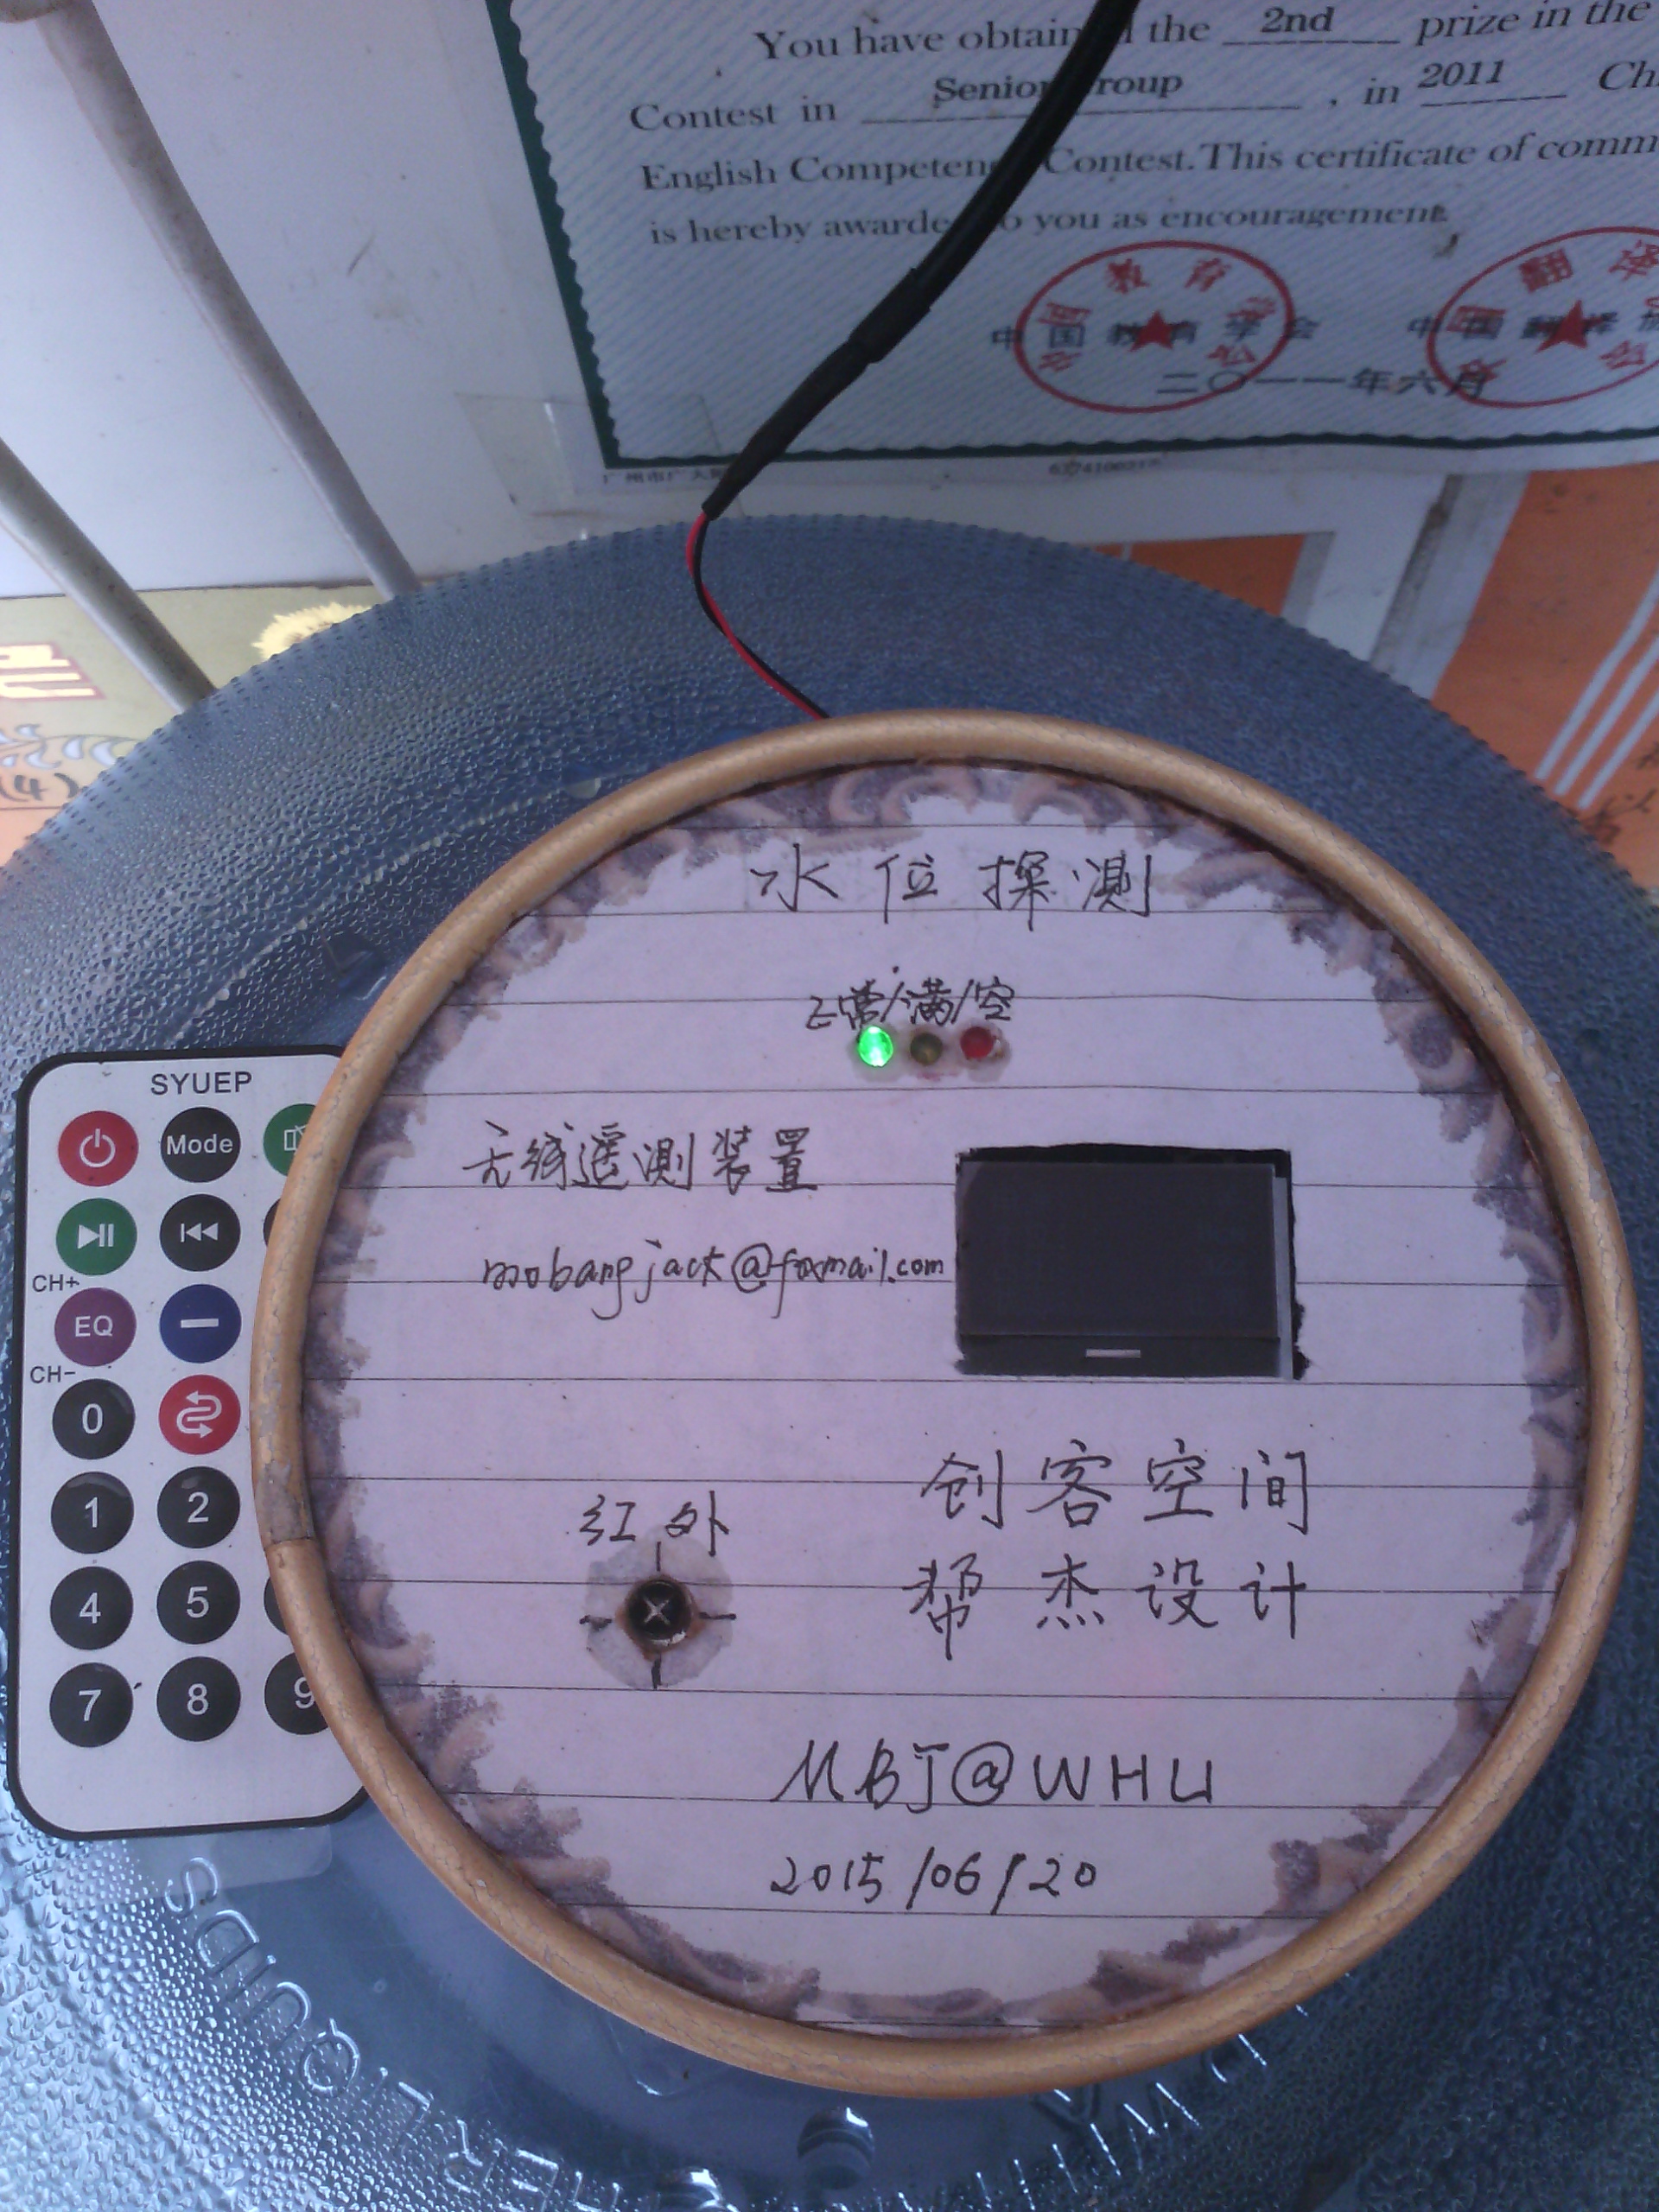 You have obtain the 2nd prize in the
Contest in Senior roup , in 2011
English Competen Contest.This certificate of
is hereby awarde o you as encouragement.
中国教育学会 中国翻译
二〇一一年六月
(4)
水位探测
正常/满/空
无线遥测装置
mobangjack@foxmail.com
红外
创客空间
帮杰设计
MBJ@WHU
2015/06/20
SYUEP
Mode
CH+
EQ
CH-
0
1 2
4 5
7 8 9